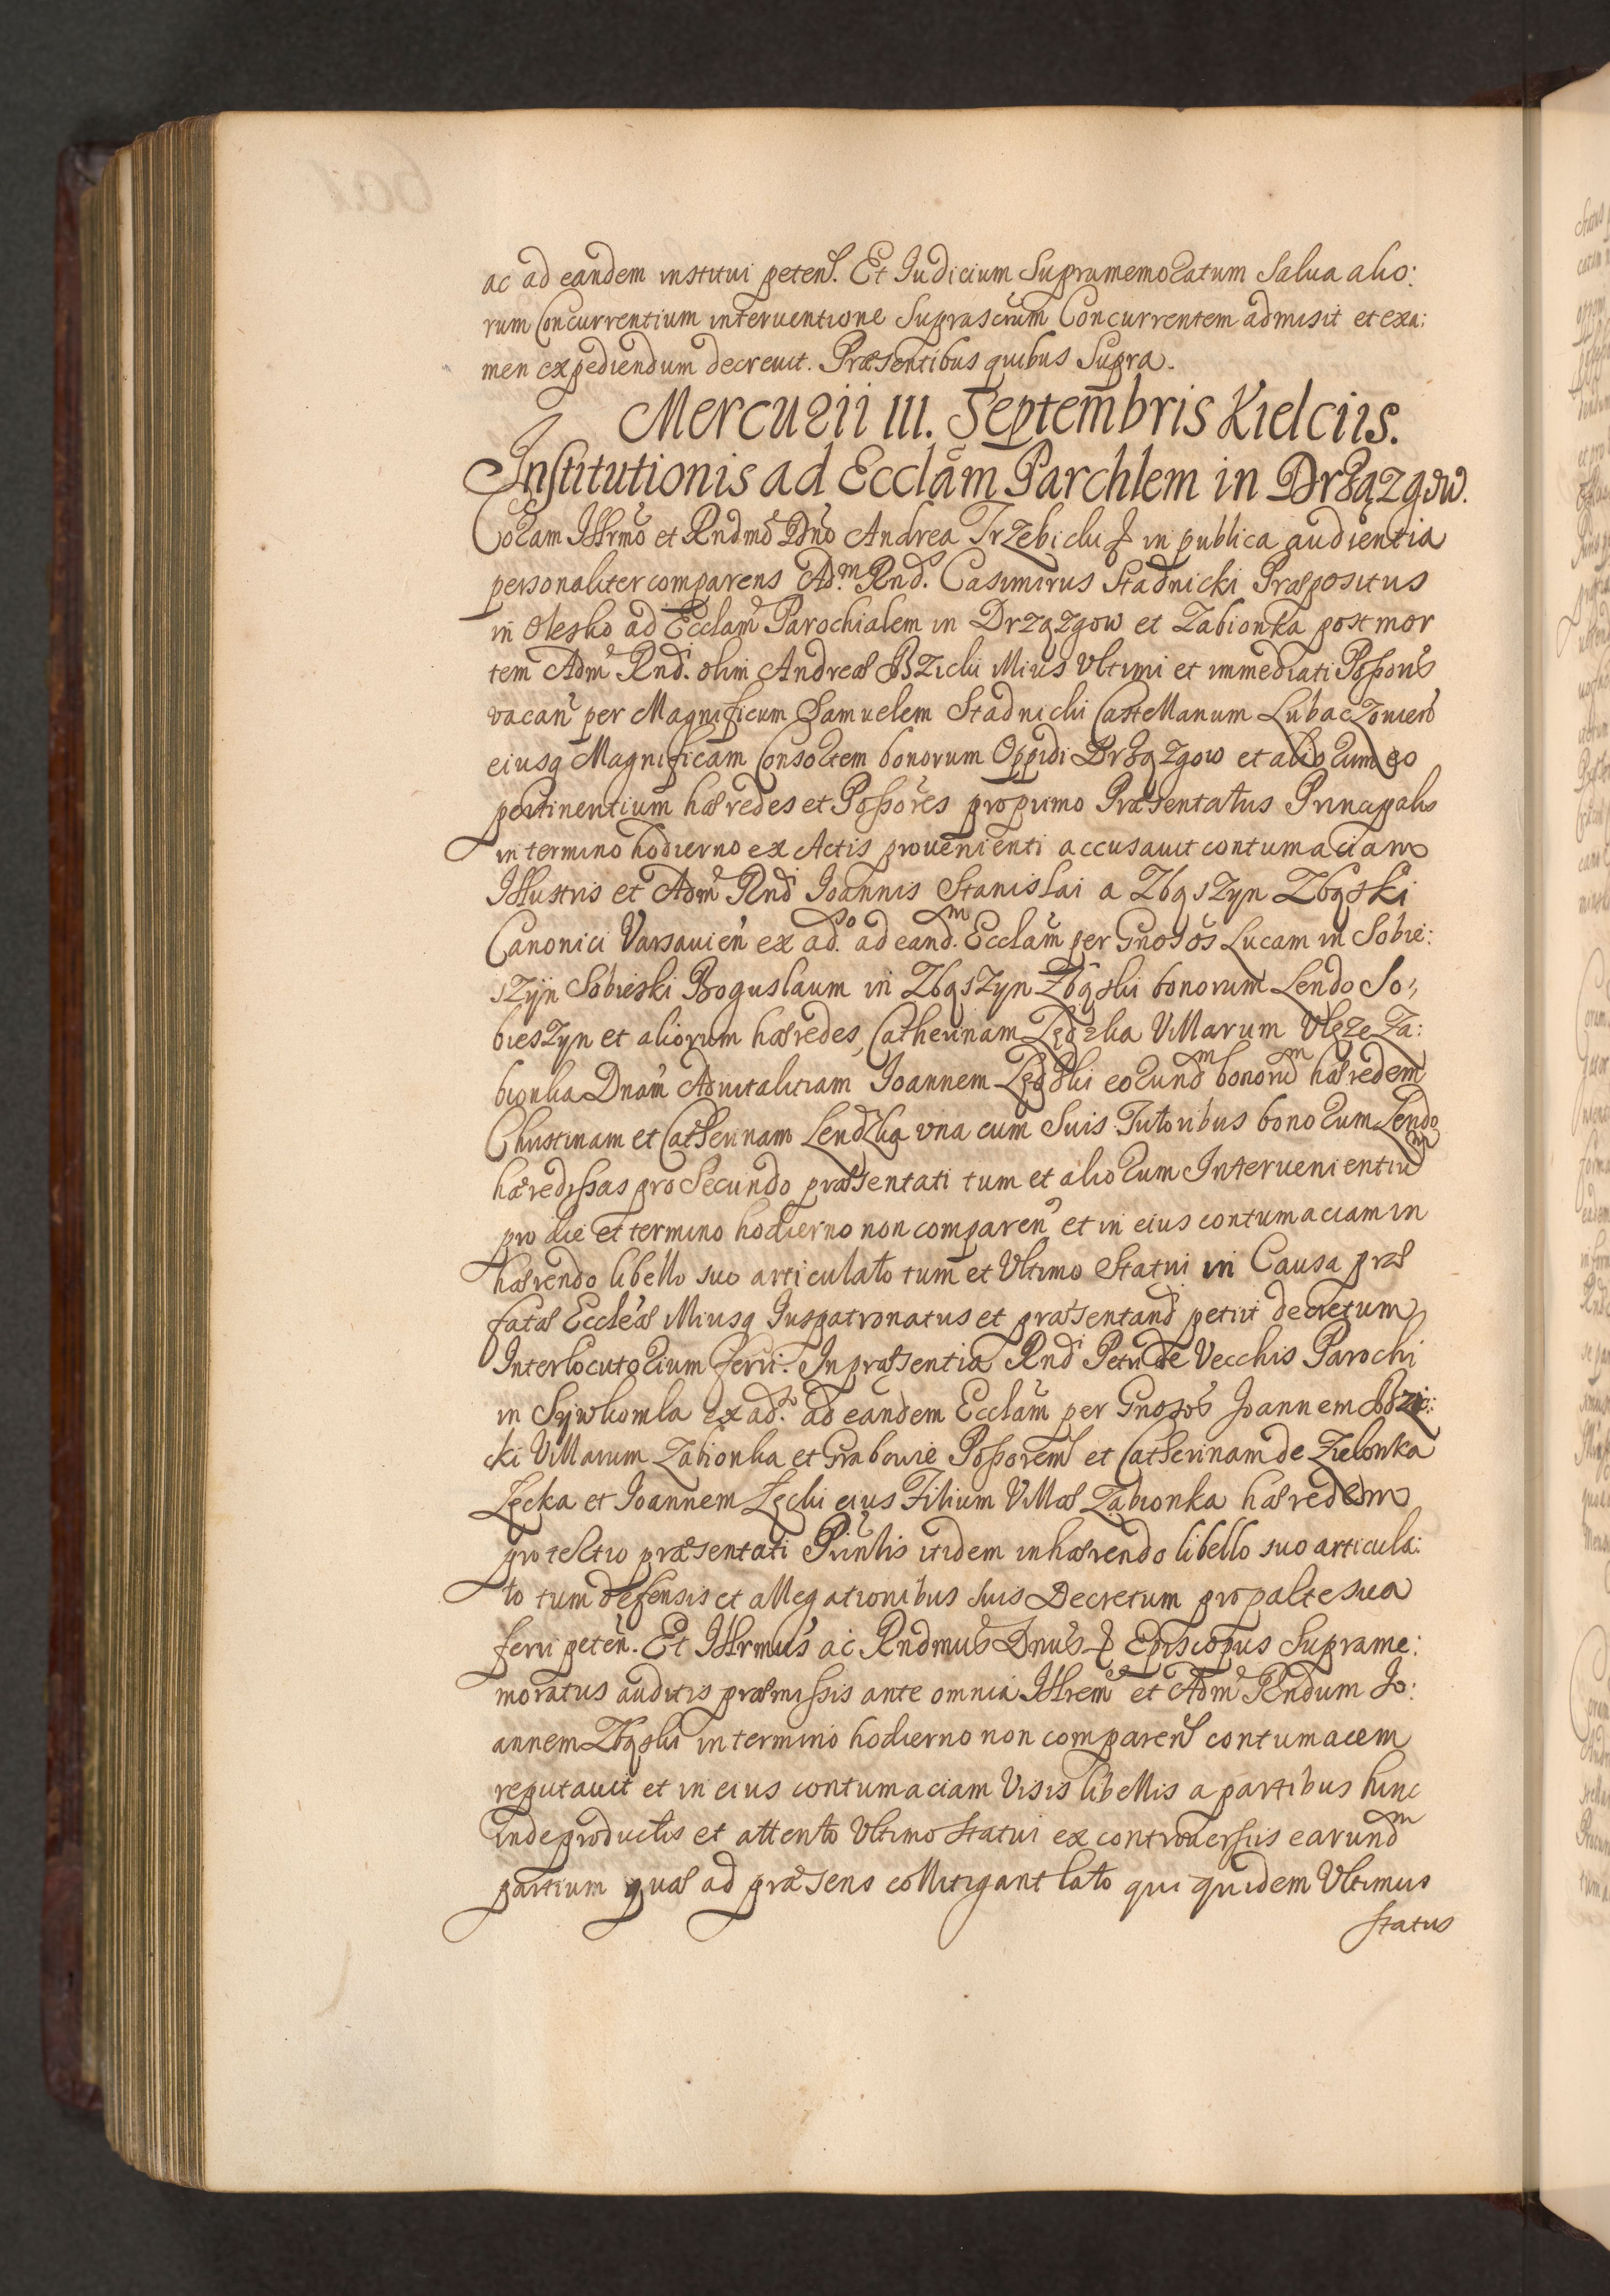 ac ad eandem institui petent. Et Iudicium Supramemoratum Salua alio:
rum Concurrentium interuentione Suprascrum Concurrentem admisit et exa:
men expediendum decreuit. Præsentibus quibus Supra.
Mercurii III. Septembris Kielciis.
Institutionis ad Ecclam Parchlem in Drzązgow.
Coram Illrmo et Rndmo Dno Andrea Trzebicki in publica audientia
personaliter comparens Adm Rnds. Casimirus Stadnicki Præpositus
in Olesko ad Ecclam Parochialem in Drzązgow et Zabionka post mor
tem Adm Rndi. olim Andreæ Bzicki illius Vltimi et immediati Possoris
vacan per Magnificum Samuelem Stadnicki Castellanum Lubaczouien
eiusq Magnificam Consortem bonorum Oppidi Drzązgow et aliorum eo
pertinentium hæredes et Possores pro primo Præsentatus Principalis
in termino hodierno ex Actis prouenienti accusauit contumaciam
Illustris et Adm Rndi Ioannis Stanislai a Zbąszyn Zbąski
Canonici Varsauien ex adso. ad eandm. Ecclam per Gnosos Lucam in Sobie:
szyn Sobieski Boguslaum in Zbąszyn Zbąski bonorum Lendo So:
bieszyn et aliorum hæredes, Catherinam Lędzka Villarum Vlęze Za:
bionka Dnam Aduitalitiam Ioannem Lędzki eorundm bonorum hæredem
Christinam et Catherinam Lendzka vna cum Suis Tutoribus bonorum Lendo
hæredissas pro Secundo præsentati tum et aliorum Interuenientium
pro die et termino hodierno non comparen et in eius contumaciam in
hærendo libello suo articulato tum et Vltimo Statui in Causa præ
fatæ Eccleæ illiusq Iuspatronatus et præsentand petiit decretum
Interlocutorium ferri. In præsentia Rndi Petri de Vecchis Parochi
in Sywkomla ex adso. ad eandem Ecclam per Gnosos Ioannem Bzic:
cki Villarum Zabionka et Grabowie Possorem et Catherinam de Zielonka
Łęcka et Ioannem Łęcki eius Filium Villæ Zabionka hæredem
pro tertio præsentati Prinlis itidem inhærendo libello suo articula:
to tum defensis et allegationibus suis Decretum pro parte sua
ferri peten. Et Illrmus ac Rndmus Dnus Episcopus Suprame:
moratus auditis præmissis ante omnia Illrem et Adm Rndum Jo:
annem Zbąski in termino hodierno non comparen contumacem
reputauit et in eius contumaciam Visis libellis a partibus hinc
inde productis et attento Vltimo Statui ex controuersiis earundm
partium quæ ad præsens collitigant lato qui quidem Vltimus
status